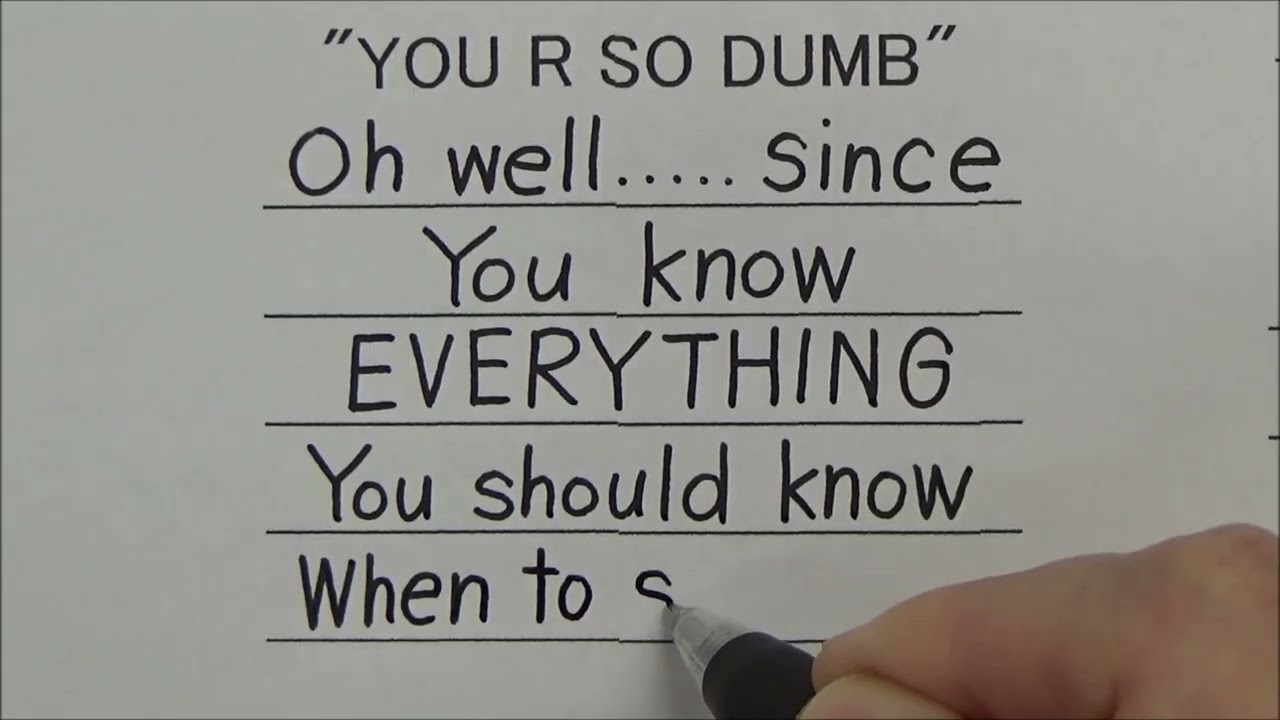 "YOU R SO DUMB"
Oh well..... since
You know
EVERYTHING
You should know
When to s